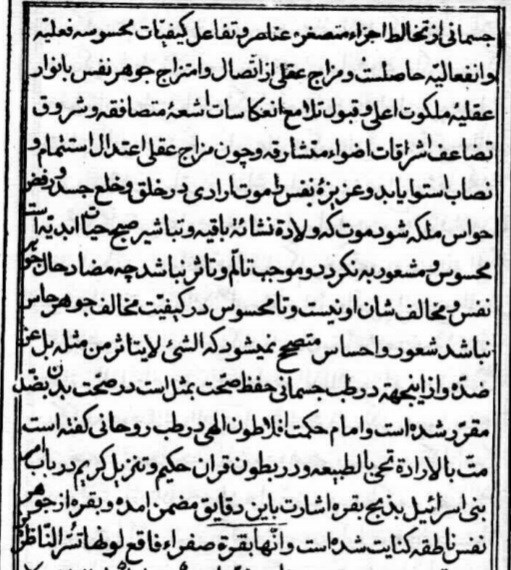 جسمانی از تخالط اجزاء متصغره عناصر و تفاعل کیفیات محسوسه فعلیه
و انفعالیه حاصلست و مزاج عقلی از اتصال و امتزاج جوهر نفس بانوار
عقلیهٔ ملکوت اعلی و قبول تلامع انعکاسات اشعهٔ متصافقه و شروق
تضاعف اشراقات اضواء متشارقه و چون مزاج عقلی اعتدال استتمام و
نصاب استوا یابد و عزیزهٔ نفس را موت ارادی در خلق و خلع جسد و رفض
حواس ملکه شود موت که ولادة نشائهٔ باقیه و تباشیر صبح حیات ابدیه است
محسوس و مشعور به نکردد و موجب تألم و تاثر نباشد چه مضاد حال جوهر
نفس و مخالف شان او نیست و تا محسوس در کیفیت مخالف جوهر حاس
نباشد شعور و احساس متصحح نمیشود که الشئ لا یتاثر من مثله بل عن
ضده و از اینجهة در طب جسمانی حفظ صحت بمثل است و صحت بدن بضد
مقرر شده است و امام حکمت افلاطون الهی در طب روحانی کفته است
مت بالارادة تحی بالطبیعه و در بطون قران حکیم و تنزیل کریم در باب امر
بنی اسرائیل بذبح بقره اشارت باین دقایق مضمن امده و بقره از جوهر
نفس ناطقه کنایت شده است و انها بقرة صفراء فاقع لونها تسر الناظرین